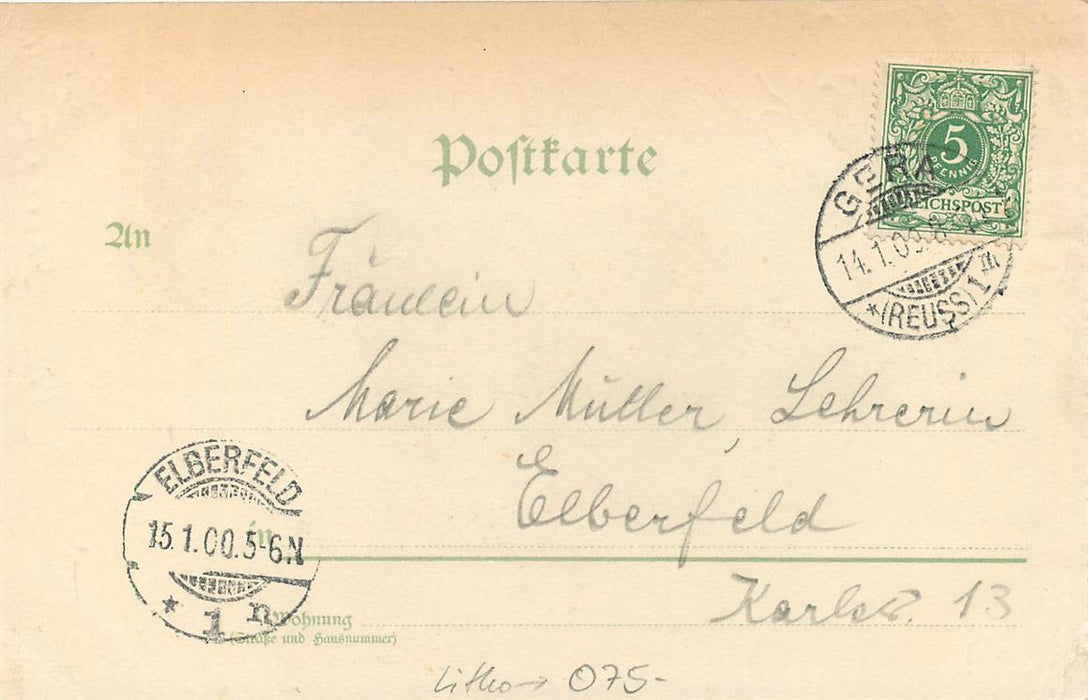 Postkarte
5
PFENNIG
REICHSPOST
GERA
14.1.00.
*(REUSS) 1
An
Fräulein
Marie Müller, Lehrerin
in Elberfeld
ELBERFELD
15.1.00.5-6N
* 1 n
Wohnung
(Straße und Hausnummer)
Karlstr. 13
Litho 075-